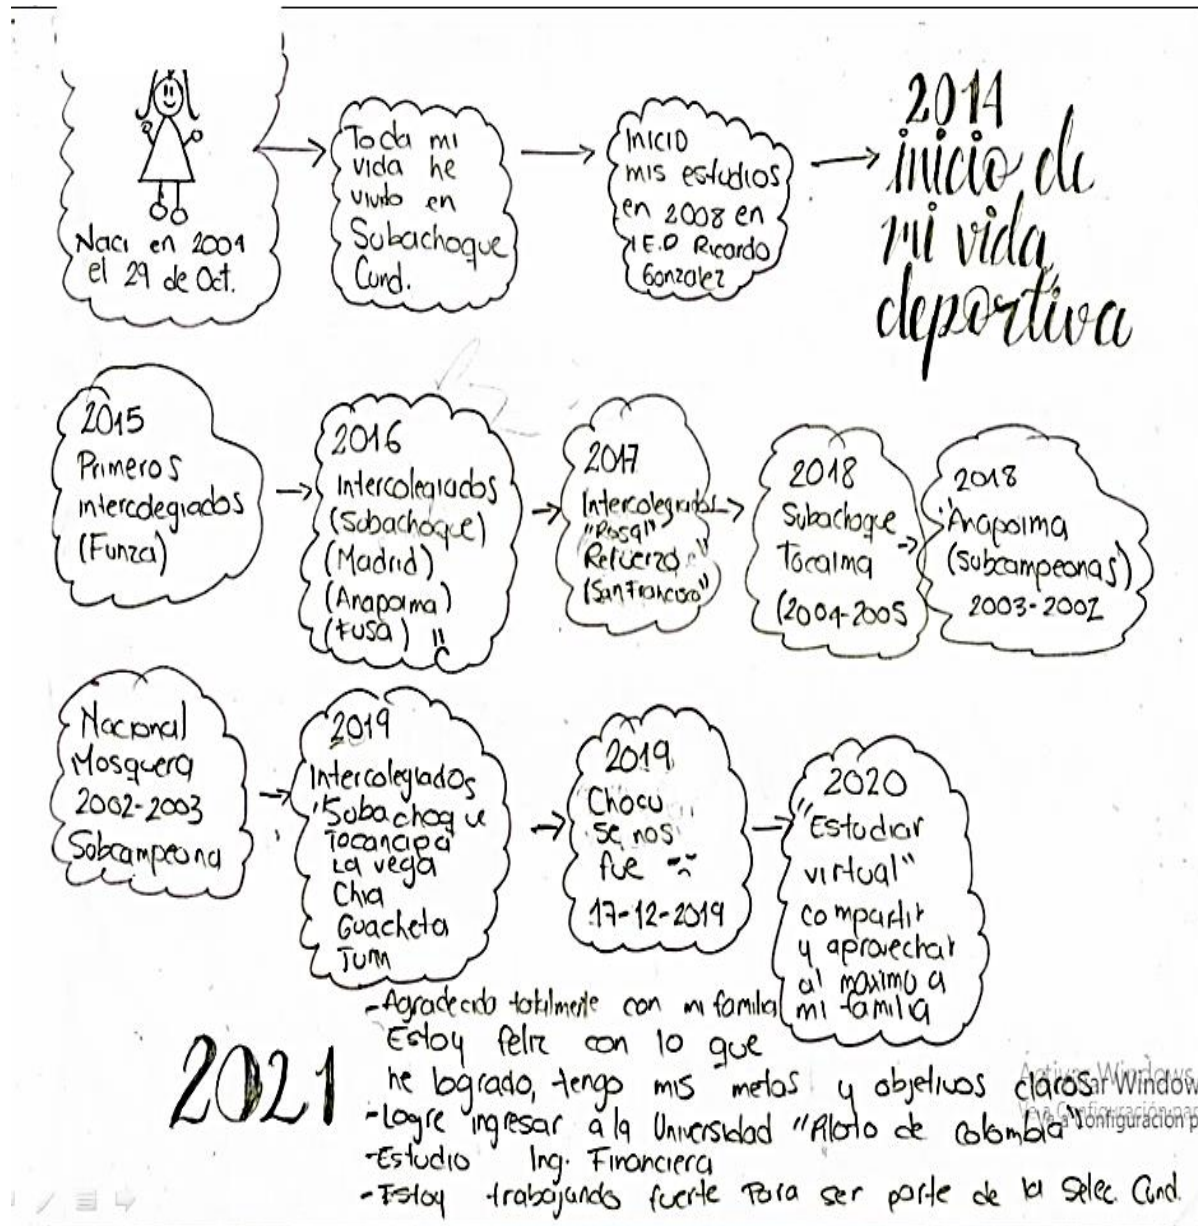 Naci en 2004
el 29 de Oct.
Toda mi
vida he
vivido en
Subachoque
Cund.
INICIO
mis estudios
en 2008 en
I.E.D Ricardo
Gonzalez
2014
inicio de
mi vida
deportiva
2015
Primeros
intercolegiados
(Funza)
2016
Intercolegiados
(Subachoque)
(Madrid)
(Anapoima)
(Fusa)
2017
Intercolegiados
"Rosa"
Refuerzo
(San Francisco"
2018
Subachoque
Tocaima
(2004-2005
2018
Anapoima
(subcampeonas)
2003-2002
Nacional
Mosquera
2002-2003
Subcampeona
2019
Intercolegiados
Subachoque
Tocancipa
La vega
Chia
Guacheta
2019
se nos
fue
17-12-2019
2020
"Estudiar
virtual"
compartir
y aprovechar
al maximo a
mi familia
2021
-Agradecido totalmente con mi familia
Estoy feliz con lo que
he logrado, tengo mis metas y objetivos claros
-Logre ingresar a la Universidad "Piloto de Colombia"
-Estudio Ing. Financiera
-Estoy trabajando fuerte Para ser parte de la Selec. Cund.